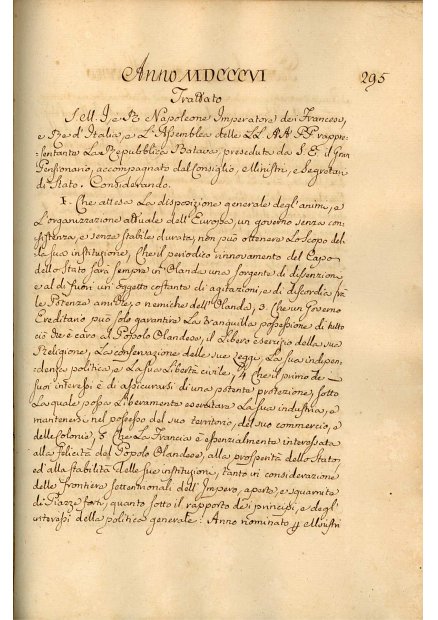 Anno MDCCCVI
295
Trattato
S. M. I. e R. Napoleone Imperatore de' Francesi,
e Re d'Italia, e L'Assemblea delle LL. AA. PP. rappre-
sentante La Repubblica Batava, preseduta da S. E. il Gran
Pensionario, accompagnato dal Consiglio, e Ministri, e Segretari
di Stato. Considerando.
1. Che attesa La disposizione generale degl'animi, e
L'organizzazione attuale dell'Europa, un governo senza con-
sistenza, e senza stabile durata, non può ottenere Lo scopo del-
la sua instituzione, Che il periodico rinnovamento del Capo
dello Stato sarà sempre in Olanda una sorgente di dissenzioni,
e al di fuori un oggetto costante di agitazioni, e di discordia fra
le Potenze amiche, o nemiche dell'Olanda, 3. Che un Governo
Ereditario può solo garantire La tranquilla possessione di tutto
ciò che è caro al Popolo Olandese, il Libero esercizio della sua
Religione, La conservazione delle sue Leggi, La sua indipen-
denza politica, e La sua Libertà civile, 4. Che il primo de
suoi interessi è di assicurarsi di una potente protezione, sotto
La quale possa Liberamente esercitare La sua industria, e
mantenersi nel possesso del suo territorio, del suo commercio, e
delle Colonie, 5. Che La Francia è essenzialmente interessata
alla felicità del Popolo Olandese, alla prosperità dello Stato,
ed alla stabilità delle sue instituzioni, tanto in considerazione
delle frontiere settentrionali dell'Impero, aperte, e sguarnite
di Piazze forti, quanto sotto il rapporto de' principj, e degl'
interessi della politica generale: Anno nominato p Ministri